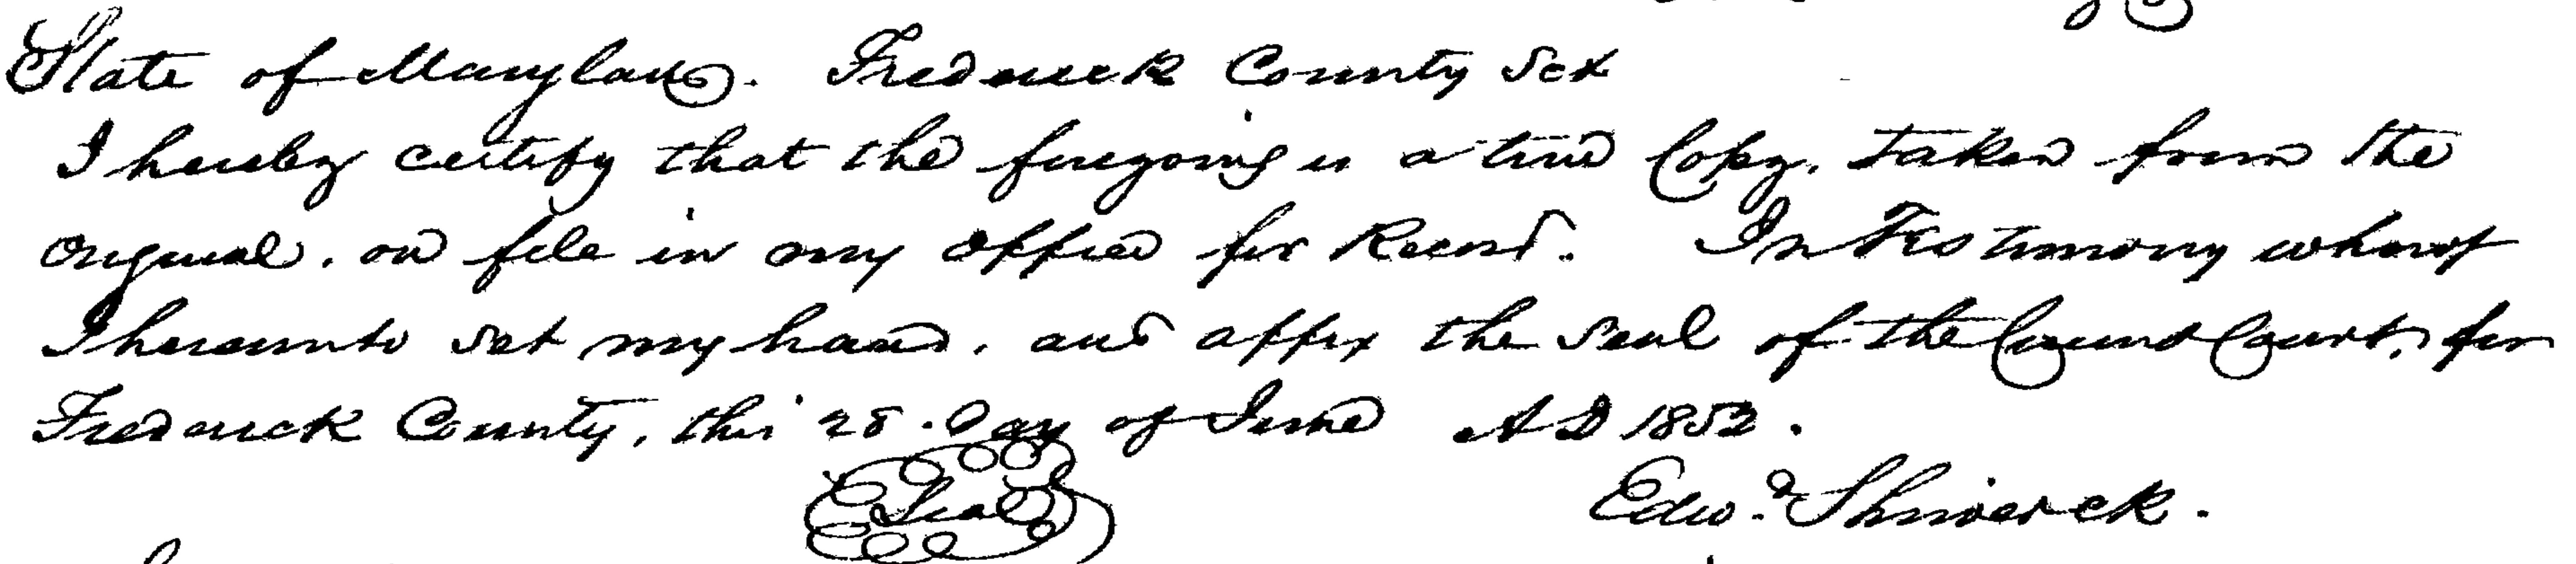 State of Maryland. Frederick County Sct
I hereby certify that the foregoing is a true Copy, taken from the
Original, on file in my Office for Record. In Testimony whereof
I hereunto set my hand, and affix the Seal of the Circuit Court, for
Frederick County, this 28. Day of June A D 1852.
Seal
Edwd. Shriver Ck.